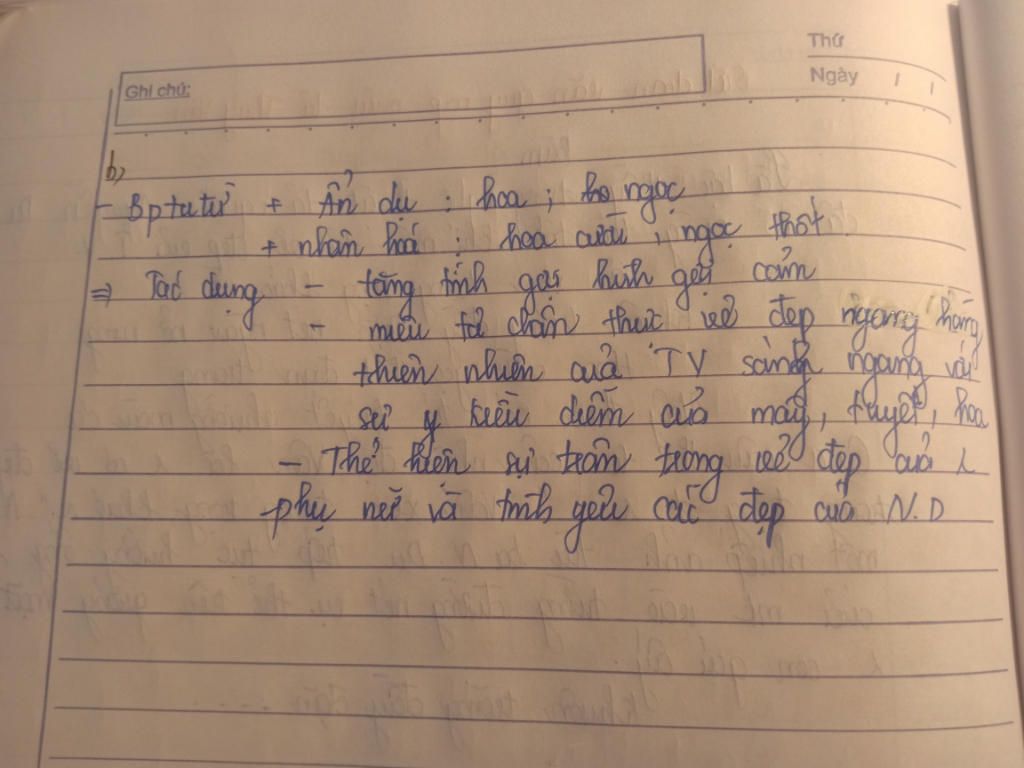 Thứ
Ngày / /
Ghi chú:
b,
- Bp tu từ + Ẩn dụ : hoa ; ngọc
+ nhân hoá : hoa cười ; ngọc thốt
⇒ Tác dụng - tăng tính gợi hình gợi cảm
- miêu tả chân thực vẻ đẹp ngang hàng
thiên nhiên của TV sánh ngang với
sự y kiều diễm của mây, tuyết, hoa
- Thể hiện sự trân trọng vẻ đẹp của
phụ nữ và tình yêu cái đẹp của N.D